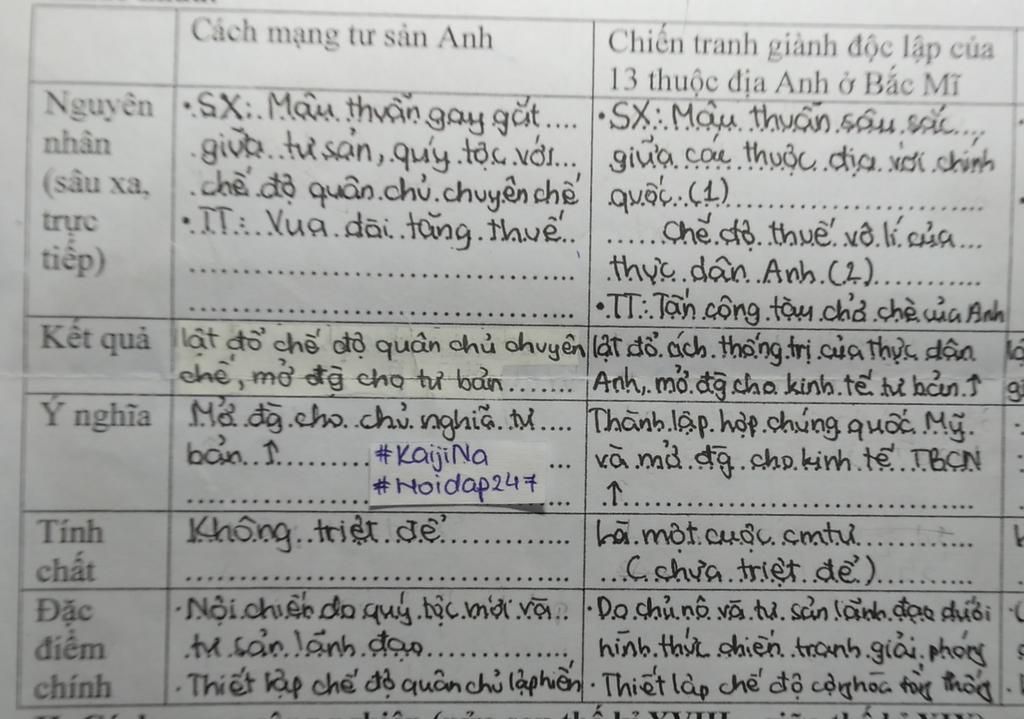 Cách mạng tư sản Anh
Chiến tranh giành độc lập của
13 thuộc địa Anh ở Bắc Mĩ
Nguyên
nhân
(sâu xa,
trực
tiếp)
• SX: Mâu thuẫn gay gắt....
giữa tư sản, quý tộc với...
chế độ quân chủ chuyên chế
• TT: Vua đòi tăng thuế..
• SX: Mâu thuẫn sâu sắc...
giữa các thuộc địa với chính
quốc (1)
chế độ thuế vô lí của...
thực dân Anh (2)
• TT: Tấn công tàu chở chè của Anh
Kết quả
lật đổ chế độ quân chủ chuyên
chế, mở đg cho tư bản.......
lật đổ ách thống trị của thực dân
Anh, mở đg cho kinh tế tư bản ↑
Ý nghĩa
Mở đg cho chủ nghĩa tư....
bản ↑
#KaijiNa
#Hoidap247
Thành lập hợp chúng quốc Mỹ
và mở đg cho kinh tế TBCN
↑
Tính
chất
Không triệt để
Là một cuộc cmtư
(chưa triệt để)
Đặc
điểm
chính
• Nội chiến do quý tộc mới và..
tư sản lãnh đạo
• Thiết lập chế độ quân chủ lập hiến
• Do chủ nô và tư sản lãnh đạo dưới
hình thức chiến tranh giải phóng
• Thiết lập chế độ cộng hòa tổng thống